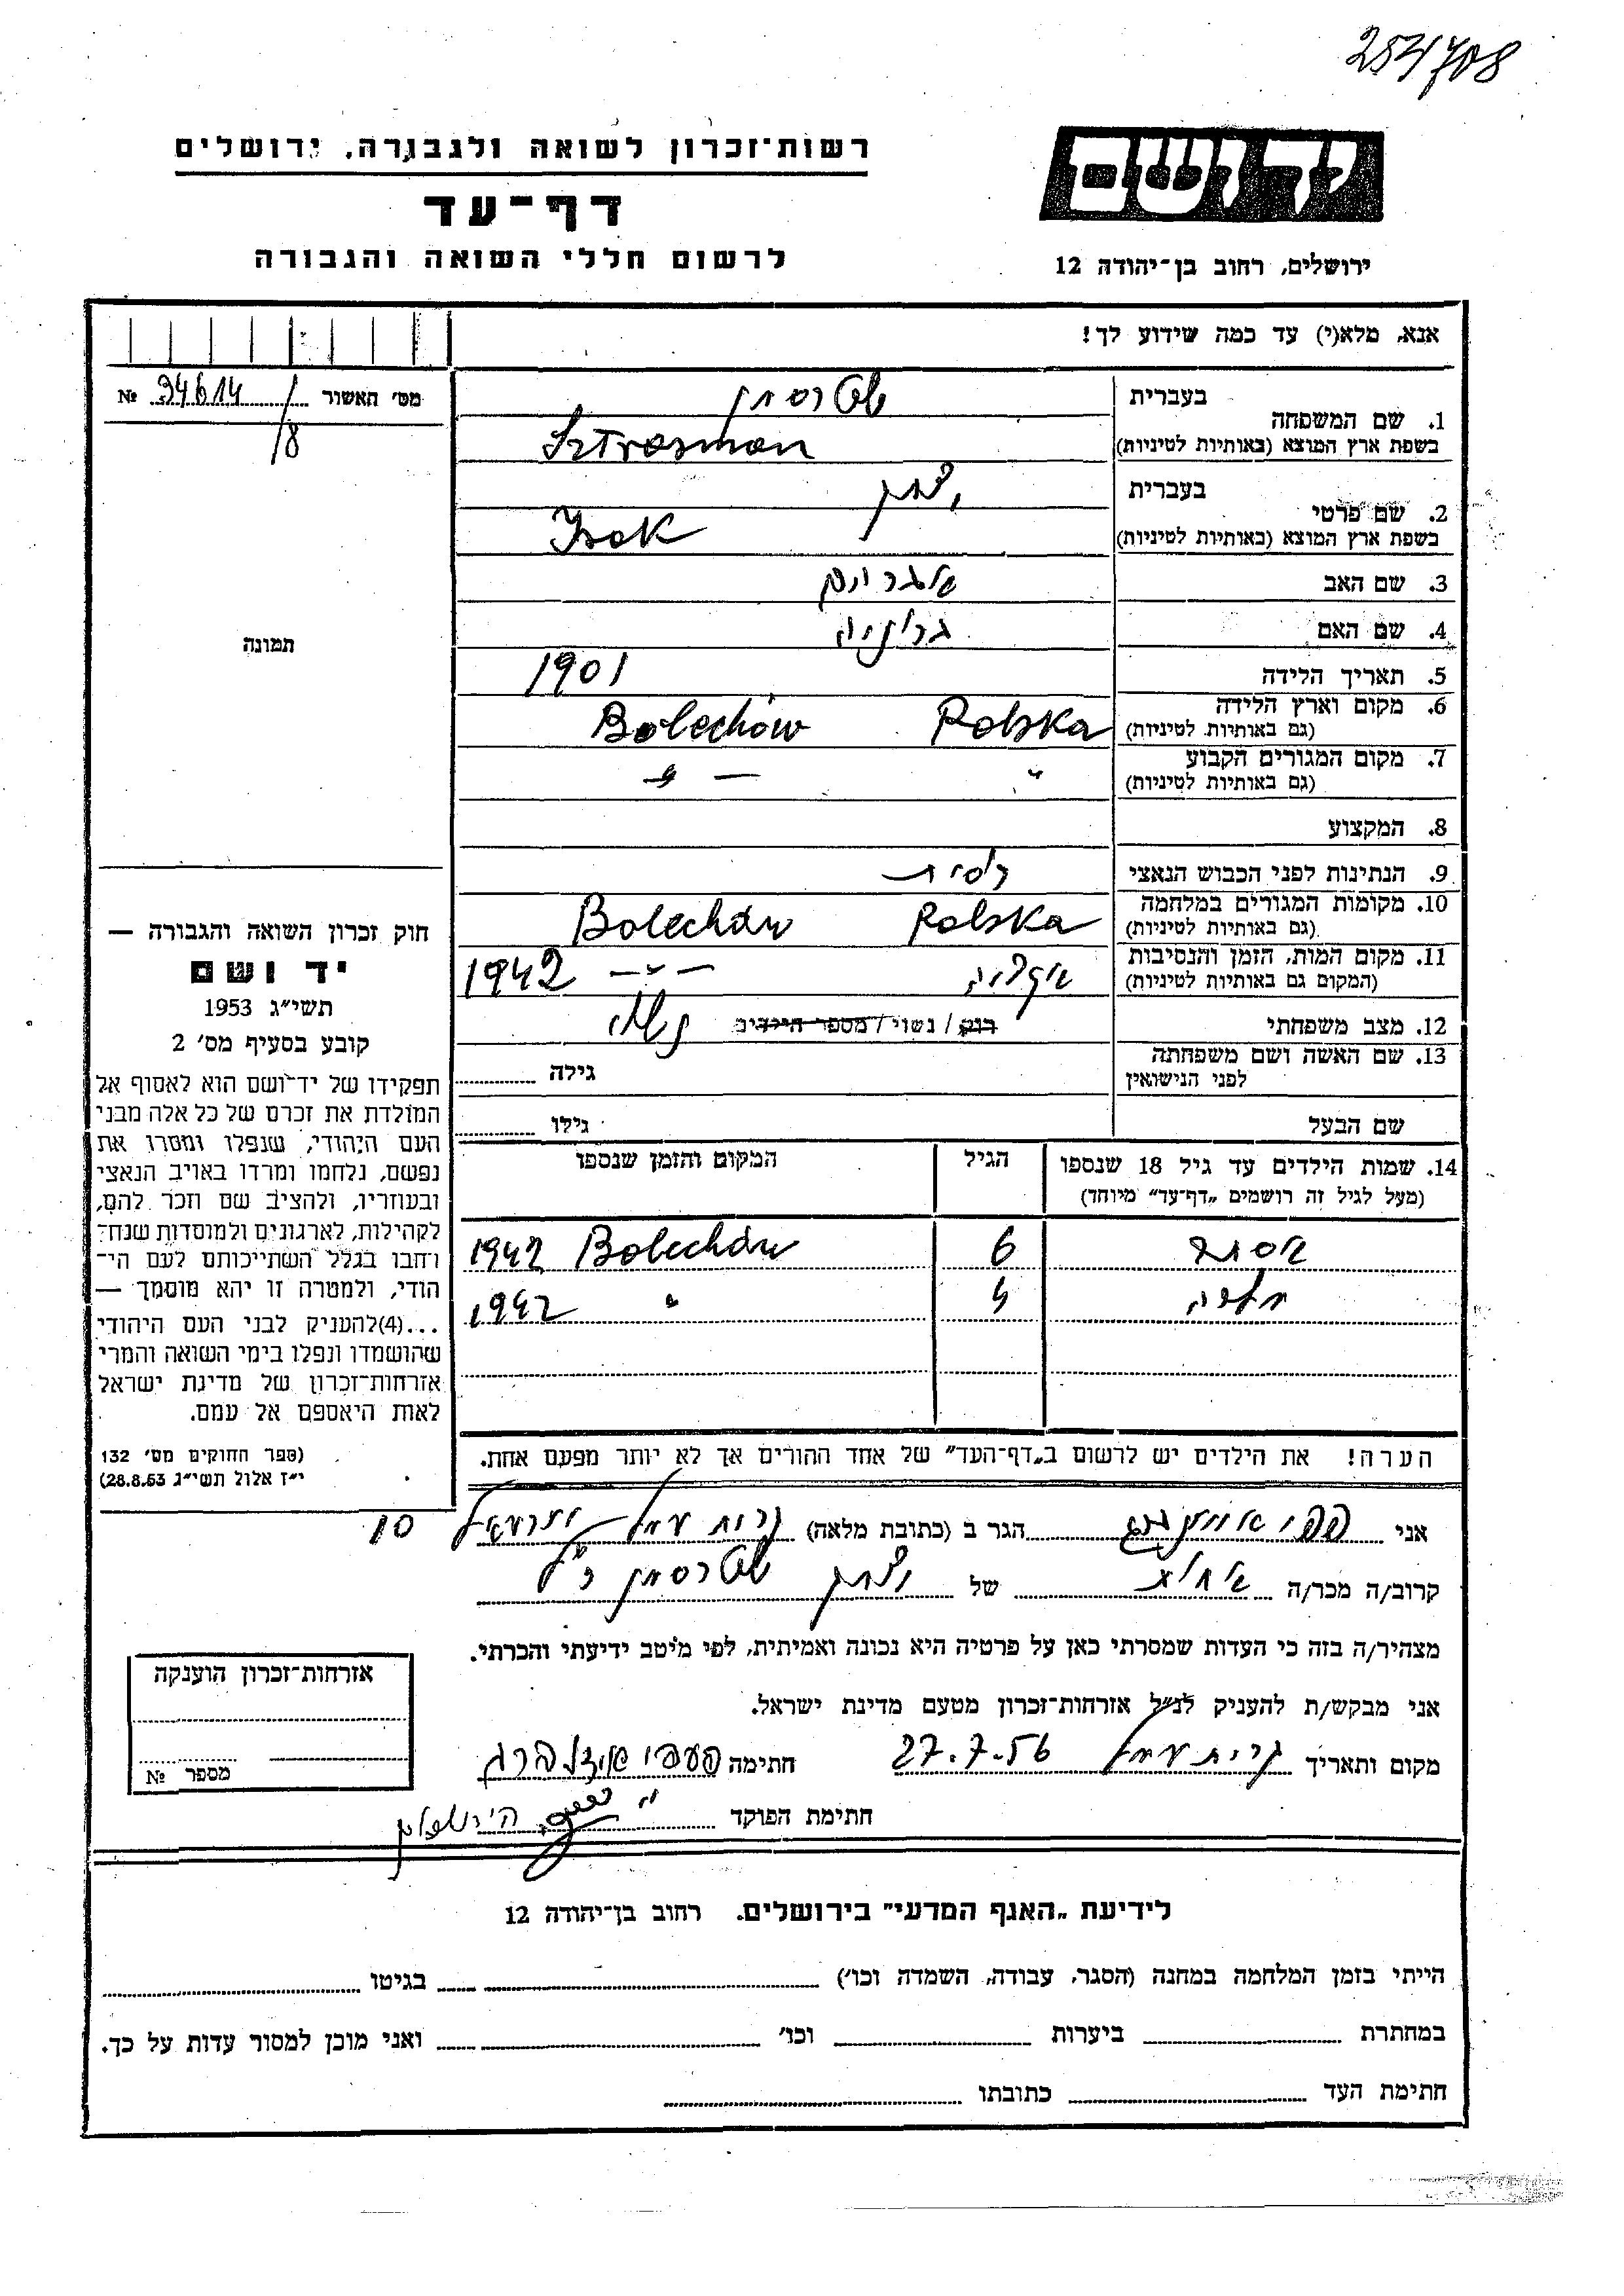 253708
רשות־זכרון לשואה ולגבורה, ירושלים
דף־עד
לרשום חללי השואה והגבורה
יד ושם
ירושלים, רחוב בן־יהודה 12
אנא, מלא(י) עד כמה שידוע לך!
מס׳ האשור 34614/8 №
תמונה
1. שם המשפחה
בעברית שטרסמן
בשפת ארץ המוצא (באותיות לטיניות) Sztrasman
2. שם פרטי
בעברית יצחק
בשפת ארץ המוצא (באותיות לטיניות) Izak
3. שם האב
4. שם האם
5. תאריך הלידה 1901
6. מקום וארץ הלידה Bolechów Polska
(גם באותיות לטיניות)
7. מקום המגורים הקבוע — " — "
(גם באותיות לטיניות)
8. המקצוע
9. הנתינות לפני הכבוש הנאצי
10. מקומות המגורים במלחמה Bolechów Polska
(גם באותיות לטיניות)
11. מקום המות, הזמן והנסיבות אקציה — " — 1942
(המקום גם באותיות לטיניות)
12. מצב משפחתי רווק / נשוי / מספר הילדים נשוי
13. שם האשה ושם משפחתה
לפני הנישואין גילה
שם הבעל גילו
14. שמות הילדים עד גיל 18 שנספו הגיל המקום והזמן שנספו
(מעל לגיל זה רושמים „דף־עד” מיוחד)
אסתר 6 Bolechów 1942
4 " 1942
הערה! את הילדים יש לרשום ב„דף־העד” של אחד ההורים אך לא יותר מפעם אחת.
חוק זכרון השואה והגבורה —
יד ושם
תשי״ג 1953
קובע בסעיף מס׳ 2
תפקידו של יד־ושם הוא לאסוף אל
המולדת את זכרם של כל אלה מבני
העם היהודי, שנפלו ומסרו את
נפשם, נלחמו ומרדו באויב הנאצי
ובעוזריו, ולהציב שם וזכר להם,
לקהילות, לארגונים ולמוסדות שנח־
רבו בגלל השתייכותם לעם הי־
הודי, ולמטרה זו יהא מוסמך —
...(4)להעניק לבני העם היהודי
שהושמדו ונפלו בימי השואה והמרי
אזרחות־זכרון של מדינת ישראל
לאות היאספם אל עמם.
(ספר החוקים מס׳ 132
י״ז אלול תשי״ג 28.8.53)
אני הגר ב (כתובת מלאה) קרית עמל 10
קרוב/ה מכר/ה של יצחק שטרסמן ז״ל
מצהיר/ה בזה כי העדות שמסרתי כאן על פרטיה היא נכונה ואמיתית, לפי מיטב ידיעתי והכרתי.
אני מבקש/ת להעניק לנ״ל אזרחות־זכרון מטעם מדינת ישראל.
מקום ותאריך קרית עמל 27.7.56 חתימה
חתימת הפוקד
אזרחות־זכרון הוענקה
מספר №
לידיעת „האגף המדעי” בירושלים. רחוב בן־יהודה 12
הייתי בזמן המלחמה במחנה (הסגר, עבודה, השמדה וכו׳) בגיטו
במחתרת ביערות וכו׳ ואני מוכן למסור עדות על כך.
חתימת העד כתובתו